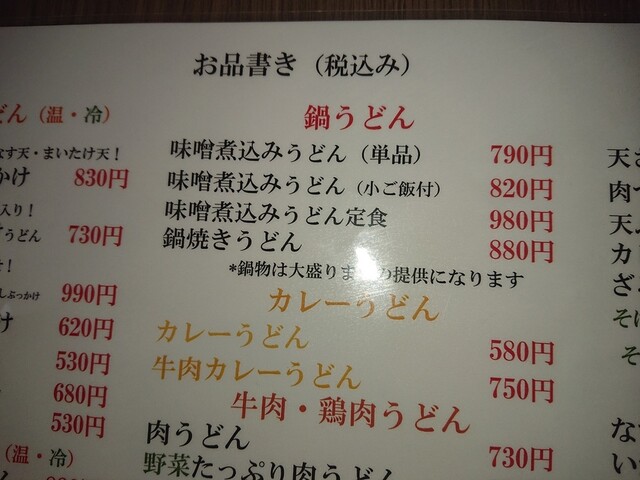 お品書き（税込み）
どん（温・冷）
なす天・まいたけ天！
かけ 830円
入り！
うどん 730円
！
しぶっかけ 990円
け 620円
530円
680円
530円
（温・冷）
鍋うどん
味噌煮込みうどん（単品） 790円
味噌煮込みうどん（小ご飯付） 820円
味噌煮込みうどん定食 980円
鍋焼きうどん 880円
*鍋物は大盛りま の提供になります
カレーうどん
カレーうどん 580円
牛肉カレーうどん 750円
牛肉・鶏肉うどん
肉うどん 730円
野菜たっぷり肉うどん
天ざ
肉
天
カ
ざ
そ
そ
な
い